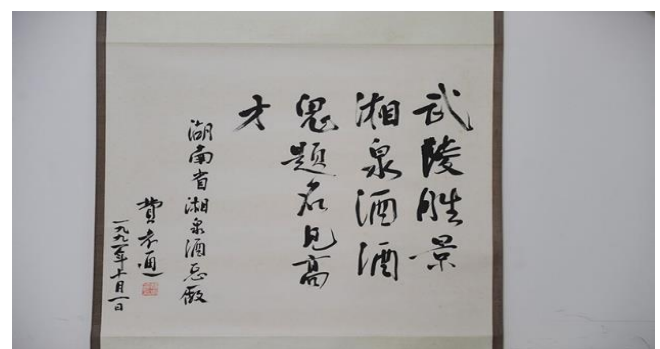 武陵胜景
湘泉酒酒
鬼题名见高
才
湖南省湘泉酒总厰
費孝通
一九九一年十月一日